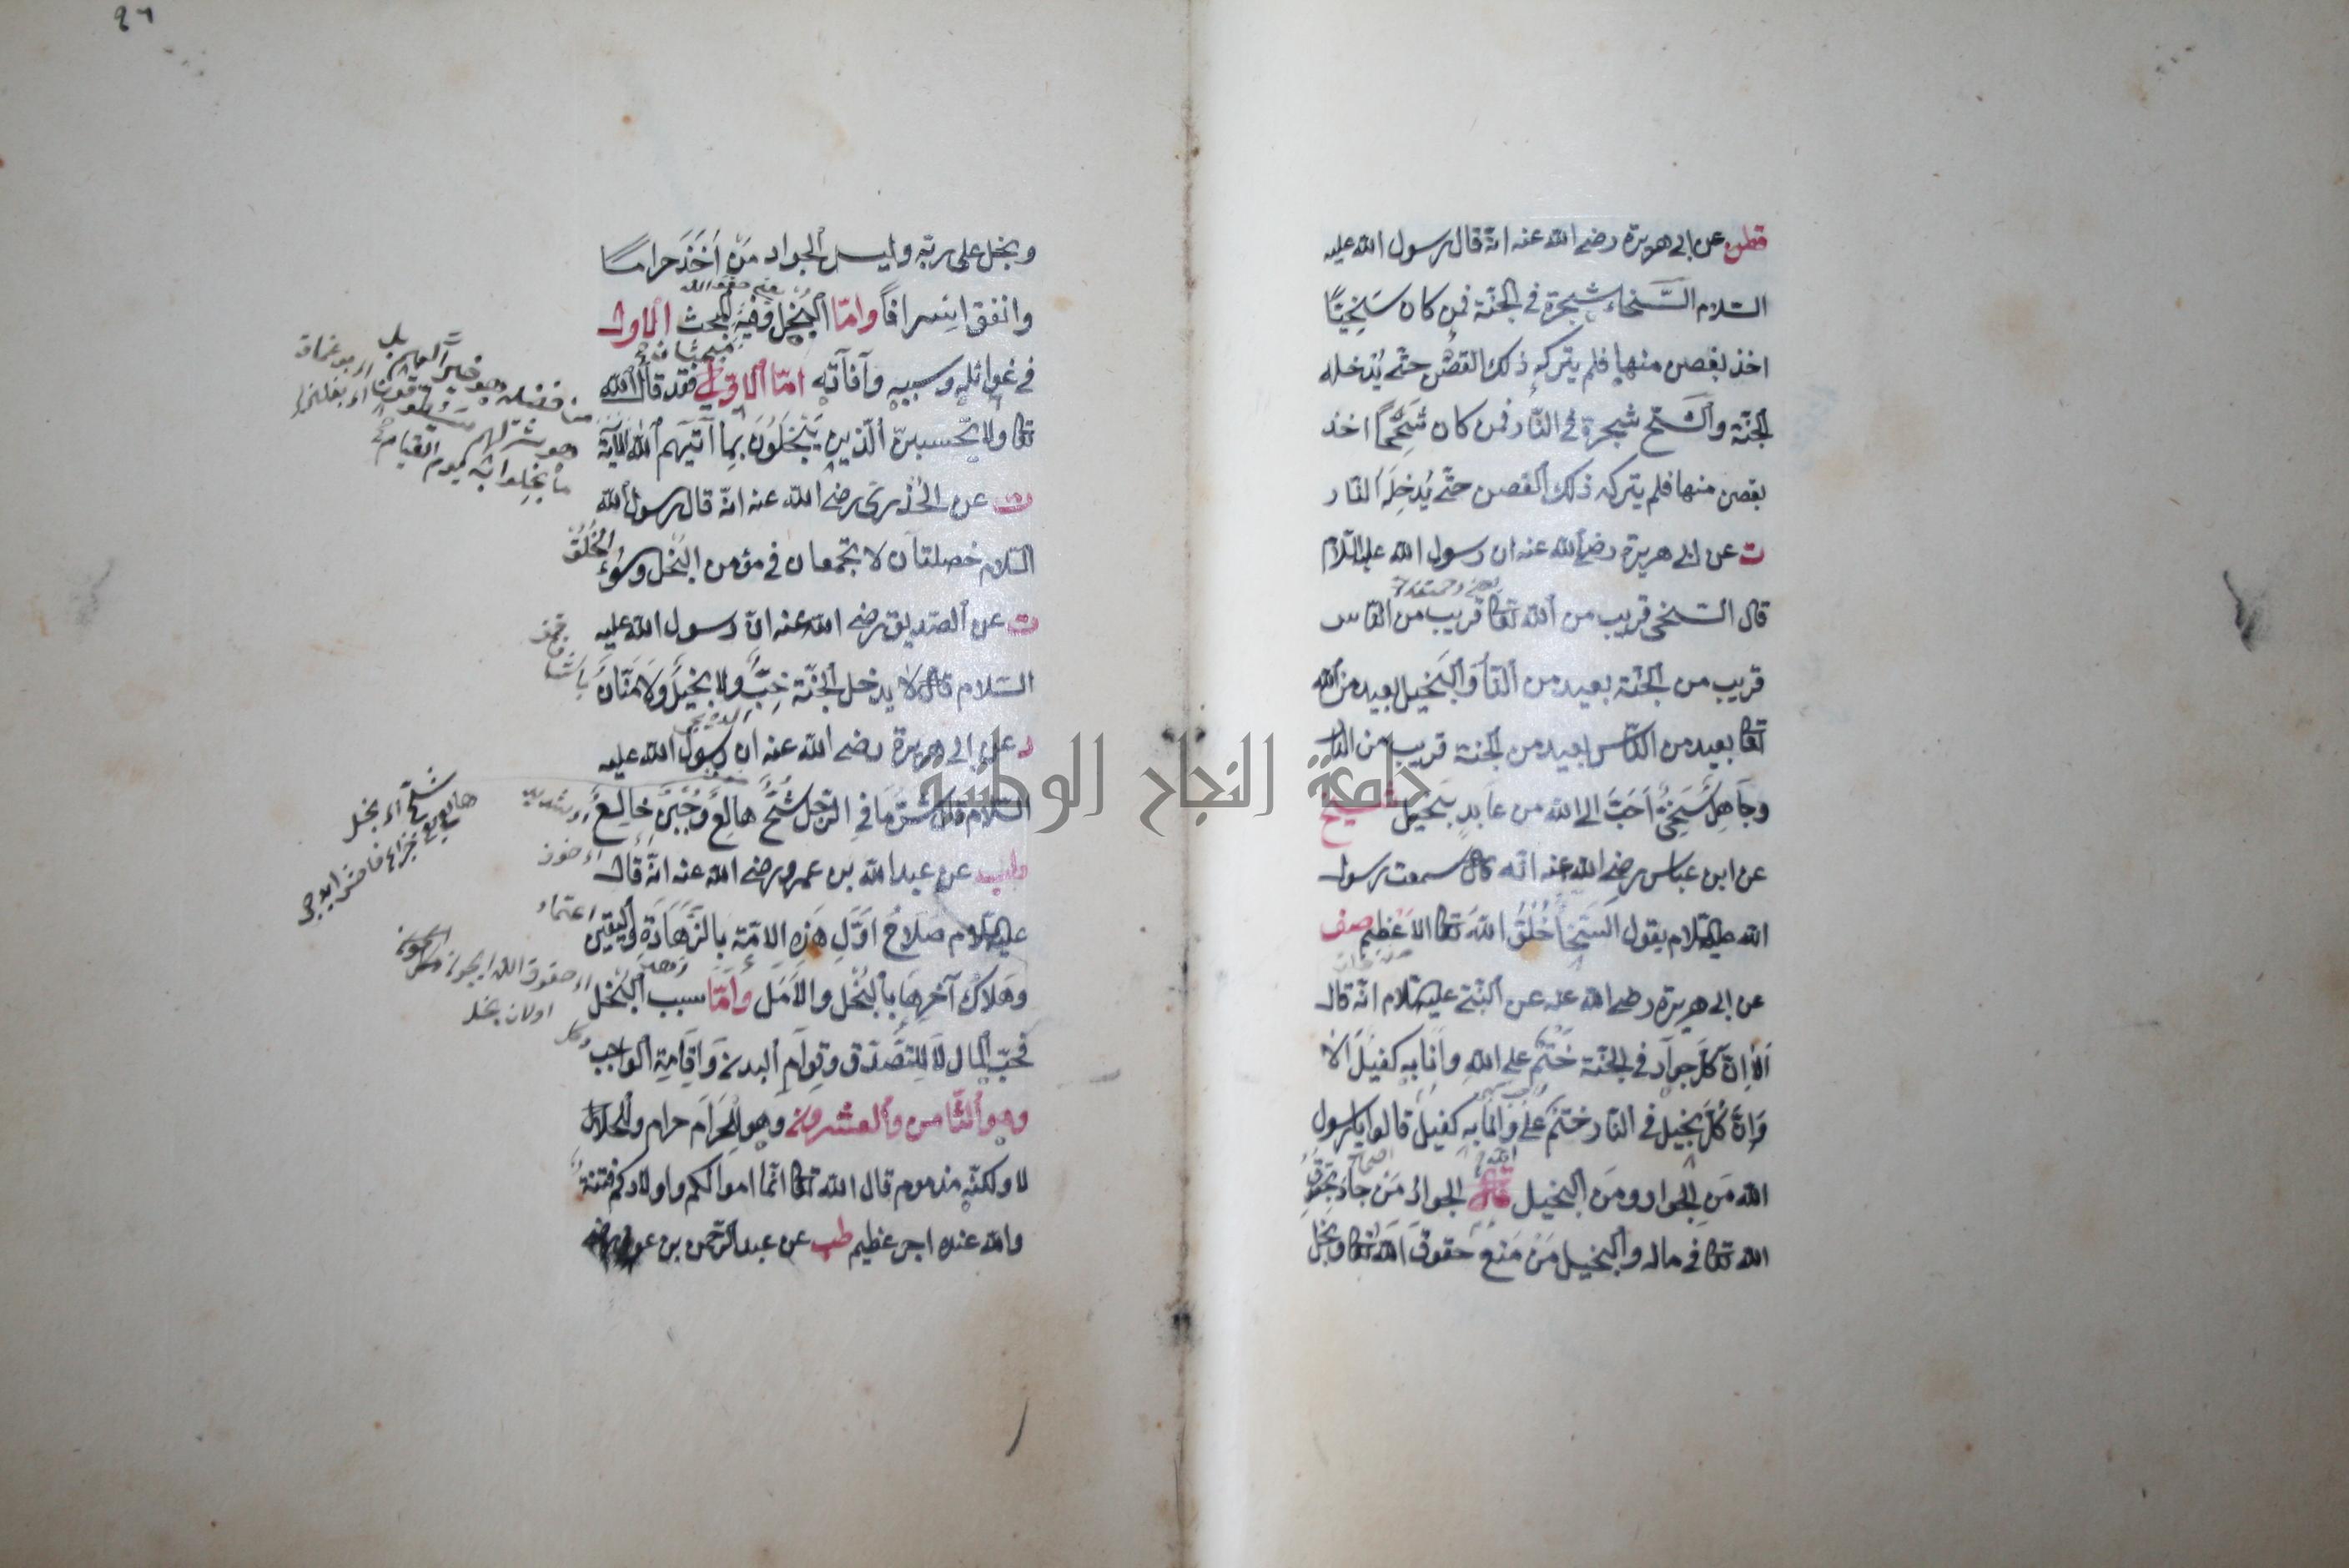 قطن عن ابى هريرة رضى الله عنه انه قال رسول الله عليه
السلام السخاء شجرة فى الجنة فمن كان سخيا
اخذ بغصن منها فلم يتركه ذلك الغصن حتى يدخله
الجنة والشح شجرة فى النار فمن كان شحيحا اخذ
بغصن منها فلم يتركه ذلك الغصن حتى يدخله النار
ت عن ابى هريرة رضى الله عنه ان رسول الله عليه السلام
قال السخى قريب من الله تعالى قريب من الناس
قريب من الجنة بعيد من النار والبخيل بعيد من الله
تعالى بعيد من الناس بعيد من الجنة قريب من النار
وجاهل سخى احب الى الله من عابد بخيل شيخ
عن ابن عباس رضى الله عنه انه قال سمعت رسول
الله عليه السلام يقول السخا خلق الله تعالى الاعظم صف
عن ابى هريرة رضى الله عنه عن النبى عليه السلام انه قال
الا ان كل جواد فى الجنة ختم على الله وانا به كفيل الا
وان كل بخيل فى النار ختم على وانا به كفيل قالوا يا رسول
الله من الجواد ومن البخيل قال الجواد من جاد بحقوق
الله تعالى فى ماله والبخيل من منع حقوق الله تعالى وبخل
وبخل على ربه وليس الجواد من اخذ حراما
وانفق اسرافا واما البخل وفيه المبحث الاول
فى غوائله وسببه وآفاته اما الاول فقد قال الله
تعالى ولا يحسبن الذين يبخلون بما آتيهم الله الآية
ت عن الخدرى رضى الله عنه انه قال رسول الله
السلام خصلتان لا تجتمعان فى مؤمن البخل وسوء الخلق
ت عن الصديق رضى الله عنه ان رسول الله عليه
السلام قال لا يدخل الجنة خب ولا بخيل ولا منان
د عن ابى هريرة رضى الله عنه ان رسول الله عليه
السلام قال شر ما فى الرجل شح هالع وجبن خالع
طب عن عبد الله بن عمرو رضى الله عنه انه قال
عليه السلام صلاح اول هذه الامة بالزهادة واليقين
وهلاك آخرها بالبخل والامل واما سبب البخل
فحب المال لا للتصدق وقوام البدن واقامة الواجب
وهو الثامن والعشرون وهو للحرام حرام وللحلال
لا ولكنه مذموم قال الله تعالى انما اموالكم واولادكم فتنة
والله عنده اجر عظيم طب عن عبد الرحمن بن عوف رضى
من فضله هو خيرا لهم بل
هو شر لهم سيطوقون
ما بخلوا به يوم القيامة
شح اى بخل
جامعة النجاح الوطنية